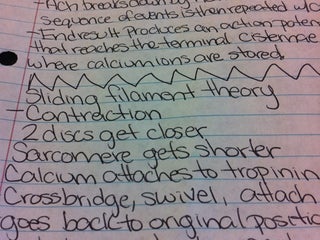 -ACh breaks down by
sequence of events is then repeated
-End result produces an action poten
that reaches the terminal cisternae
where calcium ions are stored.
Sliding filament theory
-Contraction
2 discs get closer
Sarcomere gets shorter
Calcium attaches to tropinin
Crossbridge, swivel, attach
goes back to original positio